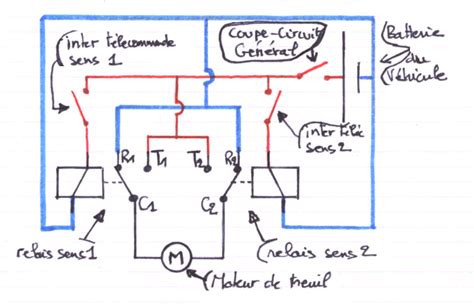 inter télécommade
sens 1
Coupe-Circuit
Général
Batterie
du
Véhicule
inter téléc
sens 2
R1
T1
T2
R2
C1
C2
relais sens 1
relais sens 2
M
Moteur de treuil